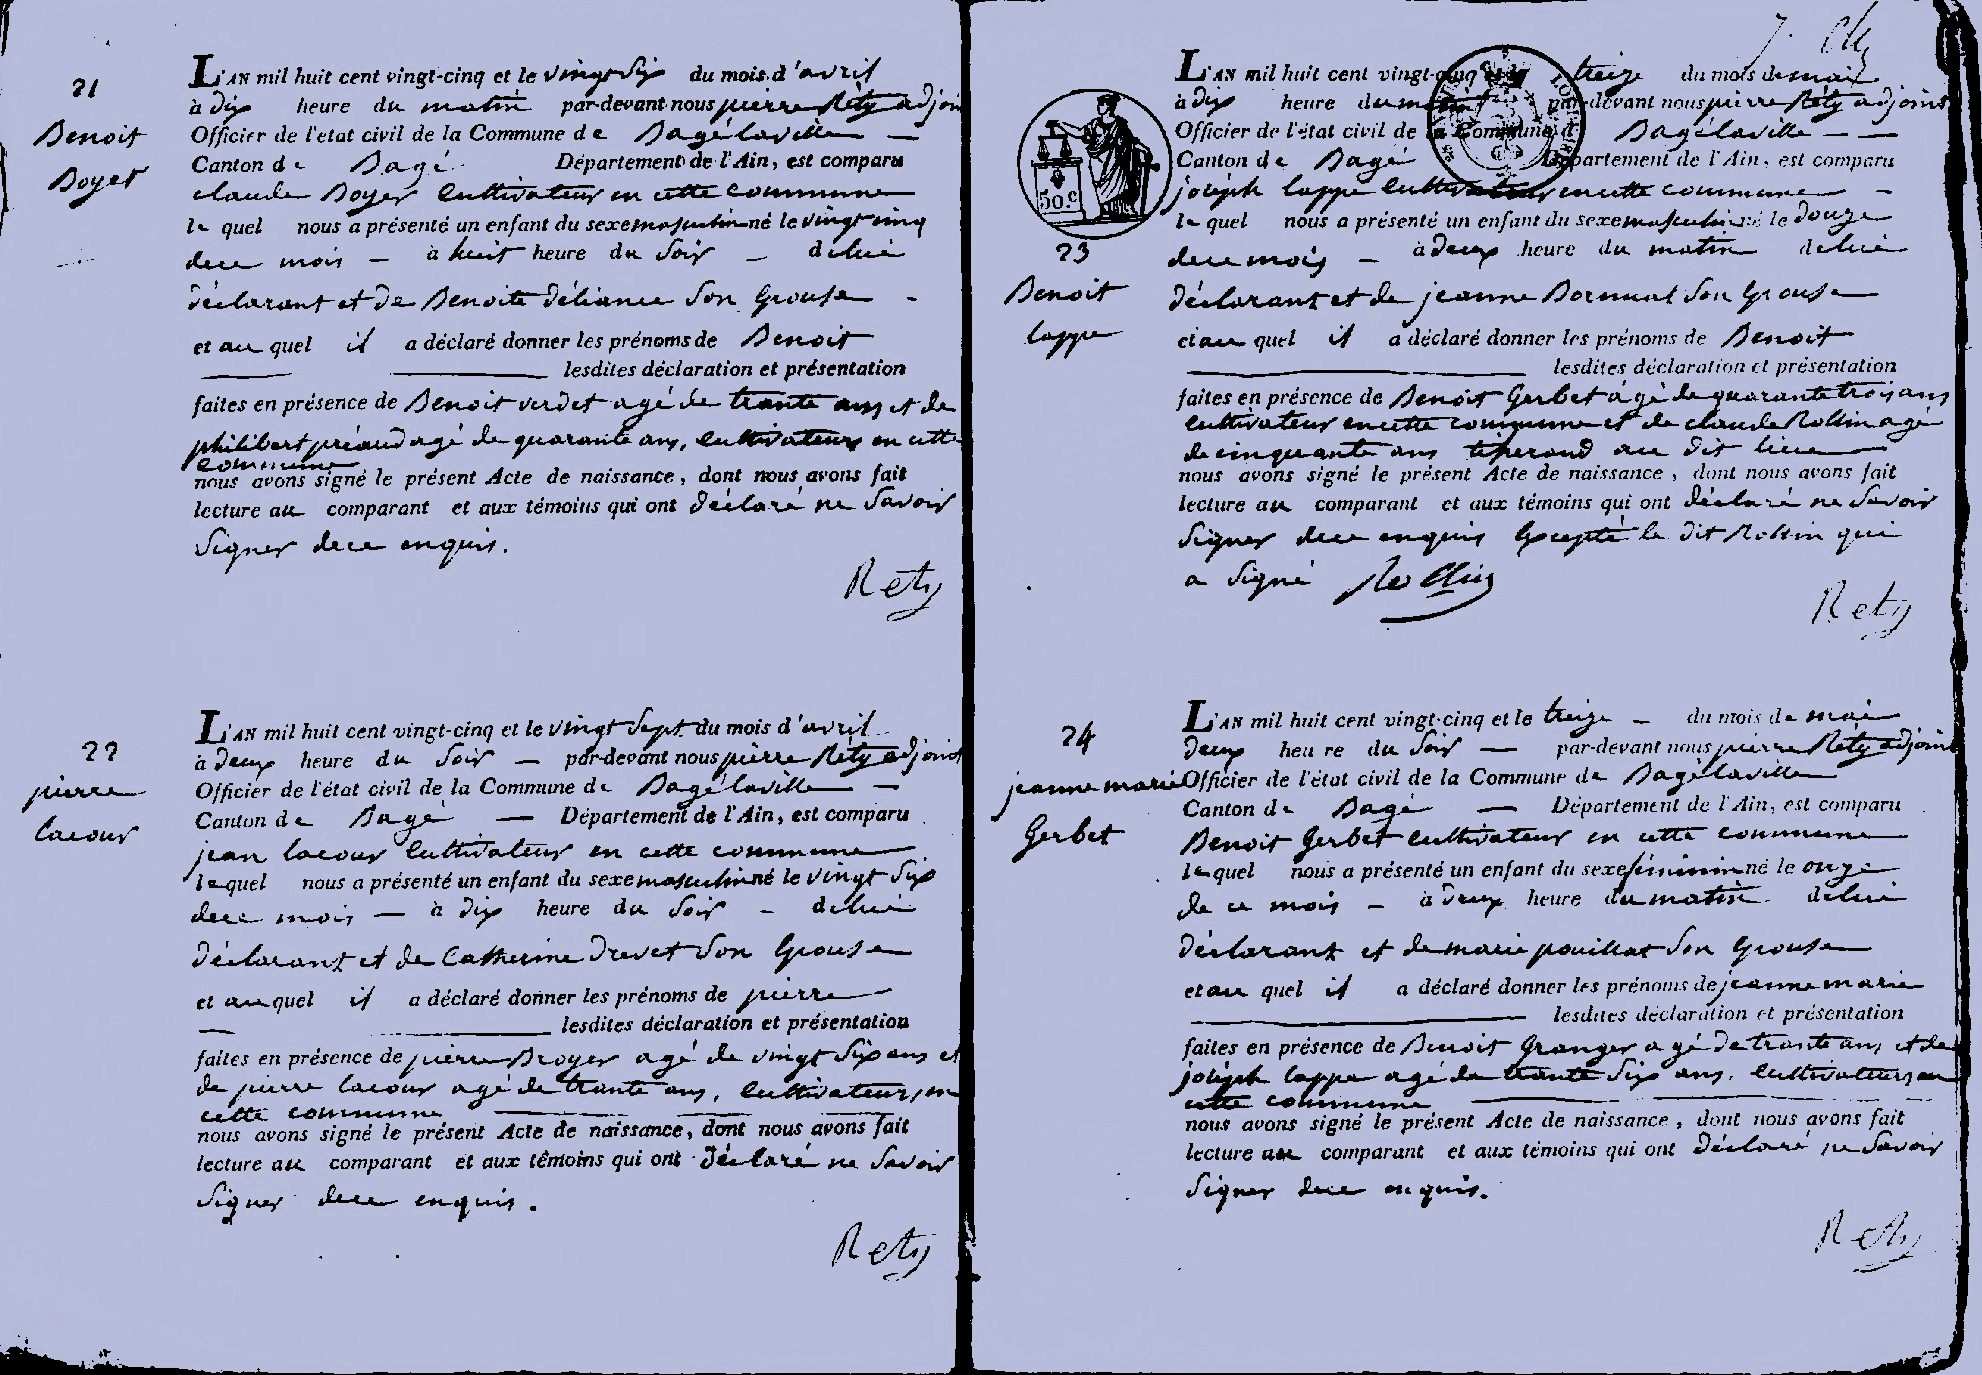 21
Benoit
Boyer
L'AN mil huit cent vingt-cinq et le vingt six du mois d'avril
à dix heure du matin par-devant nous pierre Réty adjoint
Officier de l'état civil de la Commune de Bagé laville
Canton de Bagé Département de l'Ain, est comparu
claude Boyer Cultivateur en cette commune
le quel nous a présenté un enfant du sexe masculin né le vingt cinq
dece mois à huit heure du soir de lui
déclarant et de Benoite déliance son Epouse
et au quel il a déclaré donner les prénoms de Benoit
lesdites déclaration et présentation
faites en présence de Benoit verdet agé de trante ans et de
philibert préaud agé de quarante ans, Cultivateurs en cette
commune
nous avons signé le présent Acte de naissance, dont nous avons fait
lecture au comparant et aux témoins qui ont déclaré ne savoir
signer dece enquis.
Rety
22
pierre
lacour
L'AN mil huit cent vingt-cinq et le vingt sept du mois d'avril
à deux heure du soir par-devant nous pierre Réty adjoint
Officier de l'état civil de la Commune de Bagé laville
Canton de Bagé Département de l'Ain, est comparu
jean lacour Cultivateur en cette commune
le quel nous a présenté un enfant du sexe masculin né le vingt six
dece mois à dix heure du soir de lui
déclarant et de Catherine Drevet son Epouse
et au quel il a déclaré donner les prénoms de pierre
lesdites déclaration et présentation
faites en présence de pierre Broyer agé de vingt six ans et
de pierre lacour agé de trante ans, Cultivateurs en
cette commune
nous avons signé le présent Acte de naissance, dont nous avons fait
lecture au comparant et aux témoins qui ont déclaré ne savoir
signer dece enquis.
Rety
50.c
23
Benoit
lappe
L'AN mil huit cent vingt-cinq et le treize du mois de mai
à dix heure du matin par-devant nous pierre Réty adjoint
Officier de l'état civil de la Commune de Bagé laville
Canton de Bagé Département de l'Ain, est comparu
joseph lappe Cultivateur en cette commune
le quel nous a présenté un enfant du sexe masculin né le douze
dece mois à deux heure du matin de lui
déclarant et de jeanne Bornuat son Epouse
et au quel il a déclaré donner les prénoms de Benoit
lesdites déclaration et présentation
faites en présence de Benoit Gerbet agé de quarante trois ans
Cultivateur en cette commune et de claude Rollin agé
de cinquante ans tisserand au dit lieu
nous avons signé le présent Acte de naissance, dont nous avons fait
lecture au comparant et aux témoins qui ont déclaré ne savoir
signer dece enquis Excepté le dit Rollin qui
a signé Rollin
Rety
24
jeanne marie
Gerbet
L'AN mil huit cent vingt-cinq et le treize du mois de mai
deux heure du soir par-devant nous pierre Réty adjoint
Officier de l'état civil de la Commune de Bagé laville
Canton de Bagé Département de l'Ain, est comparu
Benoit Gerbet Cultivateur en cette commune
le quel nous a présenté un enfant du sexe féminin né le onze
de ce mois à deux heure du matin de lui
déclarant et de marie pouillat son Epouse
et au quel il a déclaré donner les prénoms de jeanne marie
lesdites déclaration et présentation
faites en présence de Benoit Granger agé de trante ans et de
joseph lappe agé de trante six ans, Cultivateurs en
cette commune
nous avons signé le présent Acte de naissance, dont nous avons fait
lecture au comparant et aux témoins qui ont déclaré ne savoir
signer dece enquis.
Rety